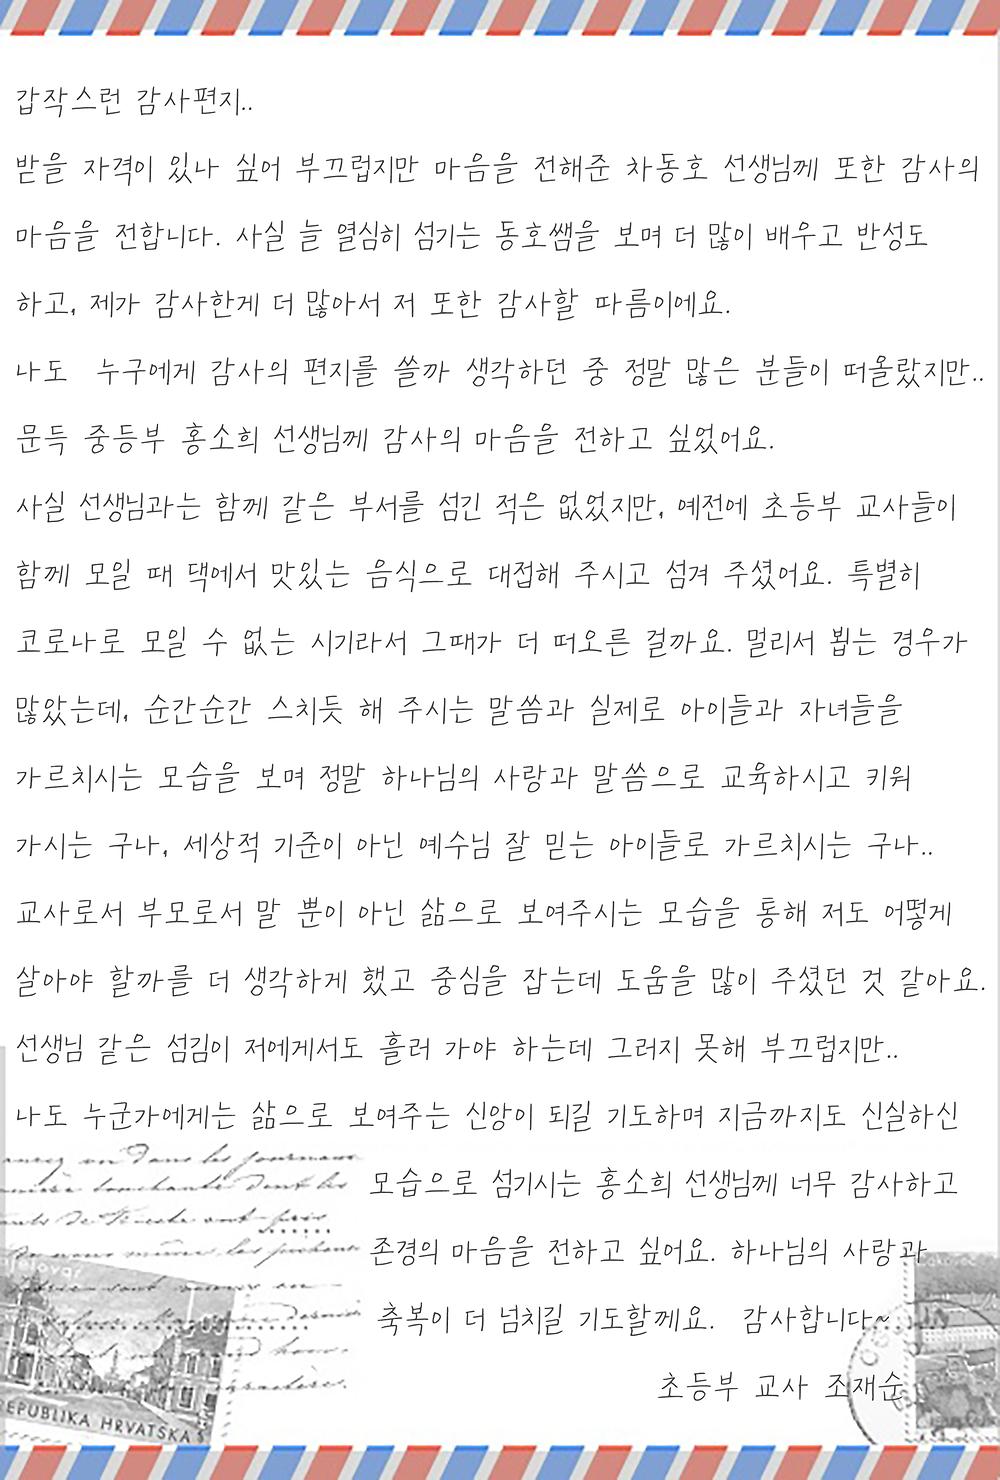 갑작스런 감사편지..
받을 자격이 있나 싶어 부끄럽지만 마음을 전해준 차동호 선생님께 또한 감사의
마음을 전합니다. 사실 늘 열심히 섬기는 동호쌤을 보며 더 많이 배우고 반성도
하고, 제가 감사한게 더 많아서 저 또한 감사할 따름이에요.
나도 누구에게 감사의 편지를 쓸까 생각하던 중 정말 많은 분들이 떠올랐지만..
문득 중등부 홍소희 선생님께 감사의 마음을 전하고 싶었어요.
사실 선생님과는 함께 같은 부서를 섬긴 적은 없었지만, 예전에 초등부 교사들이
함께 모일 때 댁에서 맛있는 음식으로 대접해 주시고 섬겨 주셨어요. 특별히
코로나로 모일 수 없는 시기라서 그때가 더 떠오른 걸까요. 멀리서 뵙는 경우가
많았는데, 순간순간 스치듯 해 주시는 말씀과 실제로 아이들과 자녀들을
가르치시는 모습을 보며 정말 하나님의 사랑과 말씀으로 교육하시고 키워
가시는 구나, 세상적 기준이 아닌 예수님 잘 믿는 아이들로 가르치시는 구나..
교사로서 부모로서 말 뿐이 아닌 삶으로 보여주시는 모습을 통해 저도 어떻게
살아야 할까를 더 생각하게 했고 중심을 잡는데 도움을 많이 주셨던 것 같아요.
선생님 같은 섬김이 저에게서도 흘러 가야 하는데 그러지 못해 부끄럽지만..
나도 누군가에게는 삶으로 보여주는 신앙이 되길 기도하며 지금까지도 신실하신
모습으로 섬기시는 홍소희 선생님께 너무 감사하고
존경의 마음을 전하고 싶어요. 하나님의 사랑과
축복이 더 넘치길 기도할께요. 감사합니다~
초등부 교사 조재순
REPUBLIKA HRVATSKA